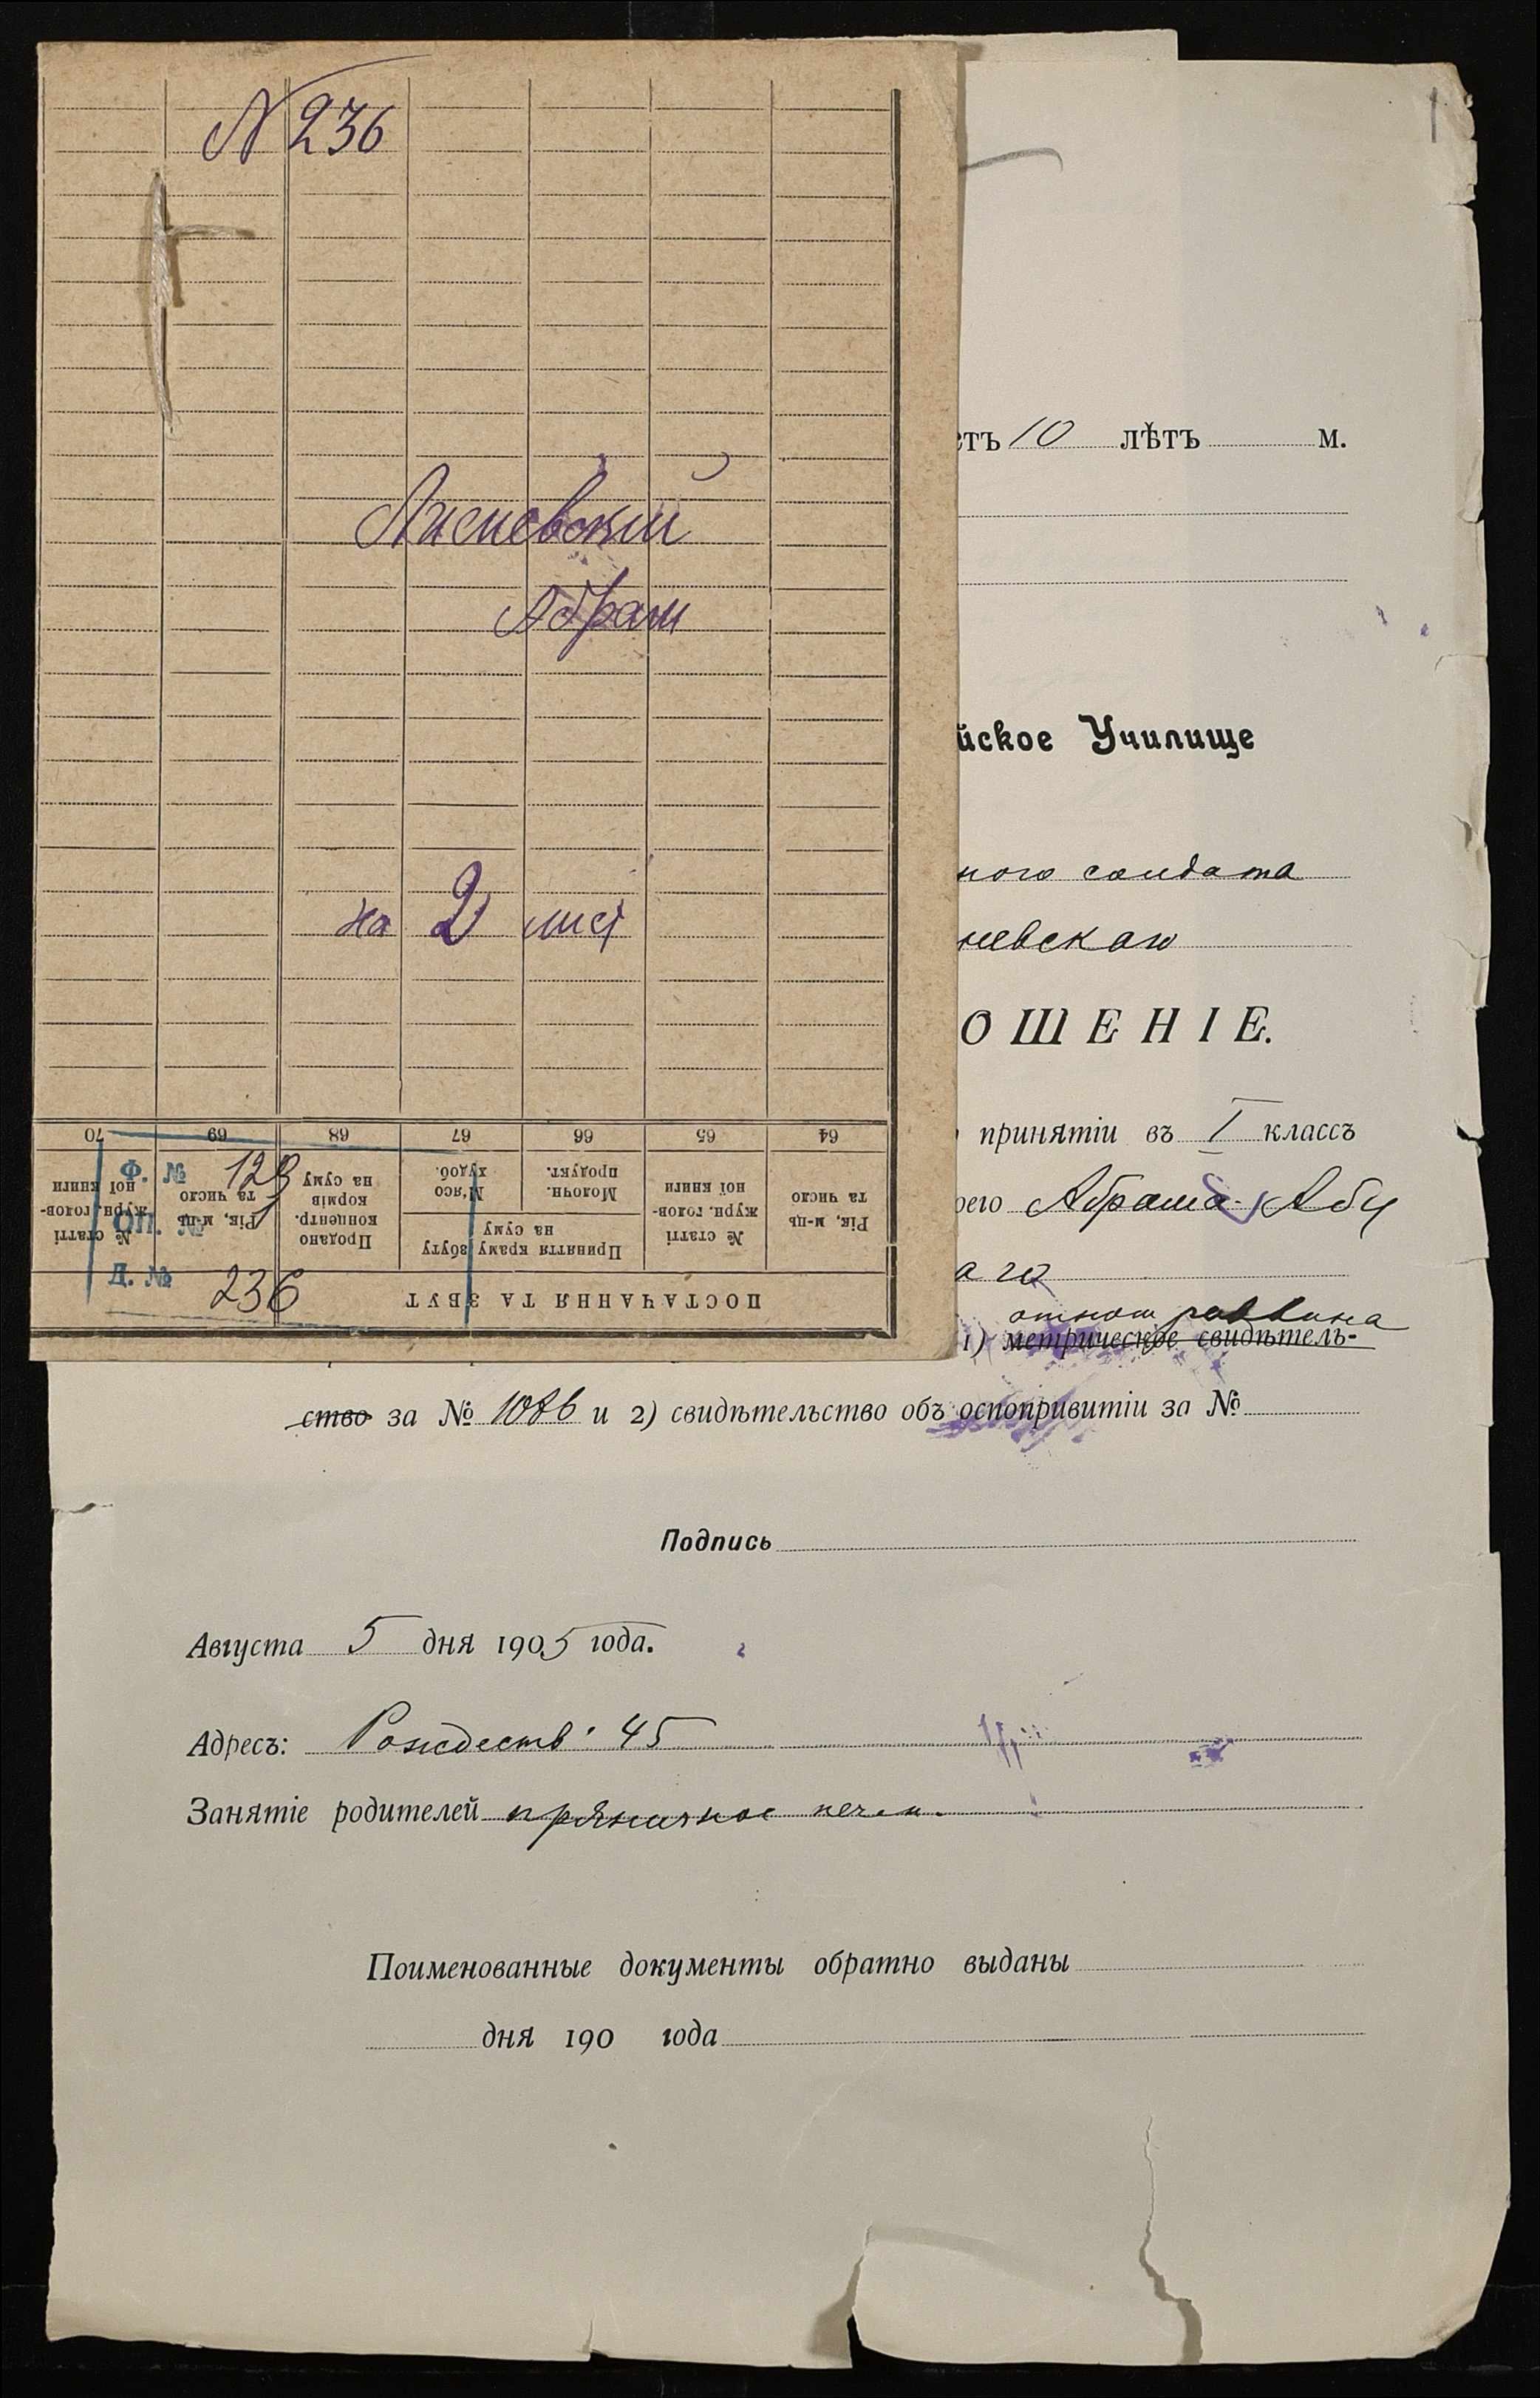 N 236
Лисневский
Абрам
на 2 лист
70 69 68 67 66 65 64
№ статті журн. голов-ної книги
Рік, м-ць та число
Продано концентр. кормів на суму
Прийняття краму збуту на суму
М'ясо худоб.
Молочн. продукт.
№ статті журн. голов-ної книги
Рік, м-ць та число
ПОСТАЧАННЯ ТА ЗБУТ
Ф. № 129
Оп. № 1
Д. № 236
1
етъ 10 лѣтъ м.
йское Училище
ного солдата
невскаго
ОШЕНІЕ.
принятіи въ I классъ
оего Абрама-Абу
аго
отнош раввина
1) метрическое свидѣтель-
ство за № 1086 и 2) свидѣтельство объ оспопривитіи за №
Подпись
Августа 5 дня 1905 года.
Адресъ: Рождеств. 45
Занятіе родителей пряничное печен.
Поименованные документы обратно выданы
дня 190 года